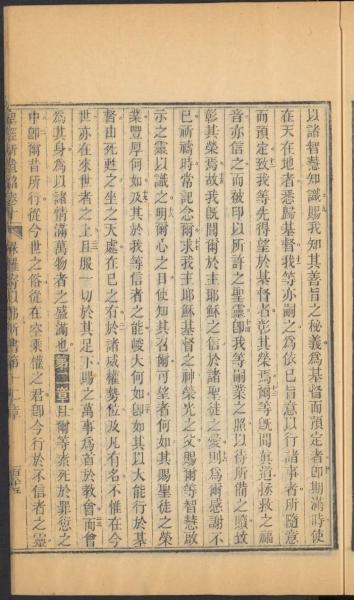 以諸智慧知識賜我知其善旨之秘義為基督而預定者即期滿時使
在天在地者悉歸基督我等亦嗣之為依已旨意以行諸事者所隨意
而預定致我等先得望於基督者彰其榮焉爾等既聞真道拯救之福
音亦信之而被印以所許之聖靈即我等嗣業之照以待所備之贖致
彰其榮焉故我既聞爾於主耶穌之信於諸聖徒之愛則為爾感謝不
已祈禱時常記念爾求我主耶穌基督之神榮光之父賜爾等智慧啟
示之靈以識之明爾心之目使知其召爾可望者何如其賜聖徒之榮
業豐厚何如及其於我等信者之能峻大何如即如其以大能行於基
督由死甦之坐之天處在已之右於諸域權勢位及凡有名不惟在今
世亦在來世者之上且服一切於其足下賜之萬事為首於教會而會
為其身為以諸情滿萬物者之盛滿也第二章且爾等素死於罪愆之
中即爾昔所行從今世之俗從在空乘權之君即今行於不信者之靈